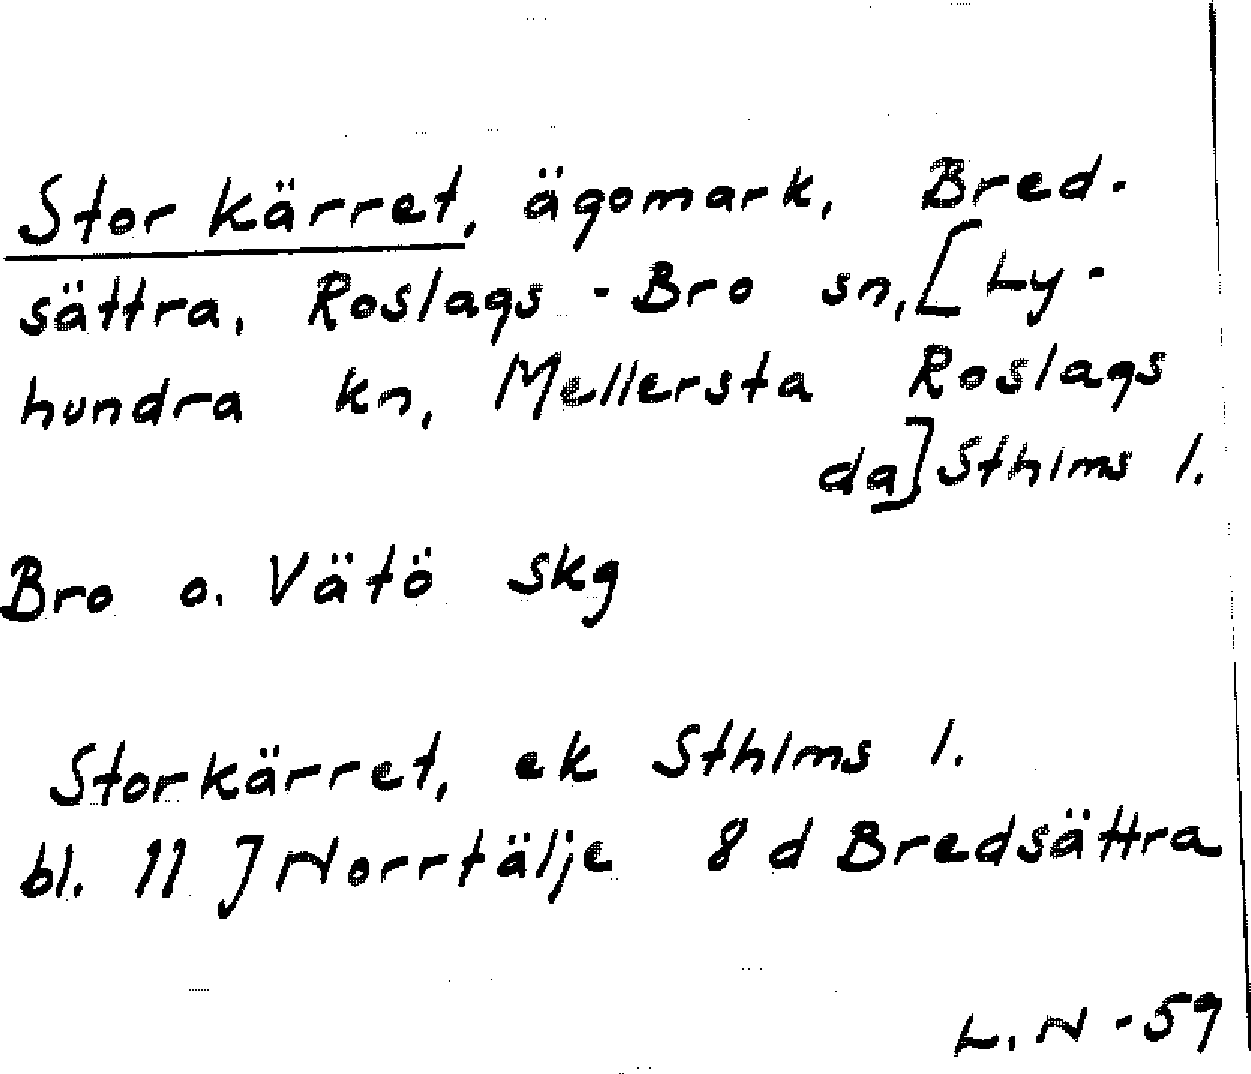 Storkärret, ägomark, Bred-
sättra, Roslags-Bro sn, [Ly-
hundra kn, Mellersta Roslags
da] Sthlms l.
Bro o. Vätö skg
Storkärret, ek Sthlms l.
bl. 11 J Norrtälje 8 d Bredsättra
L. N -59